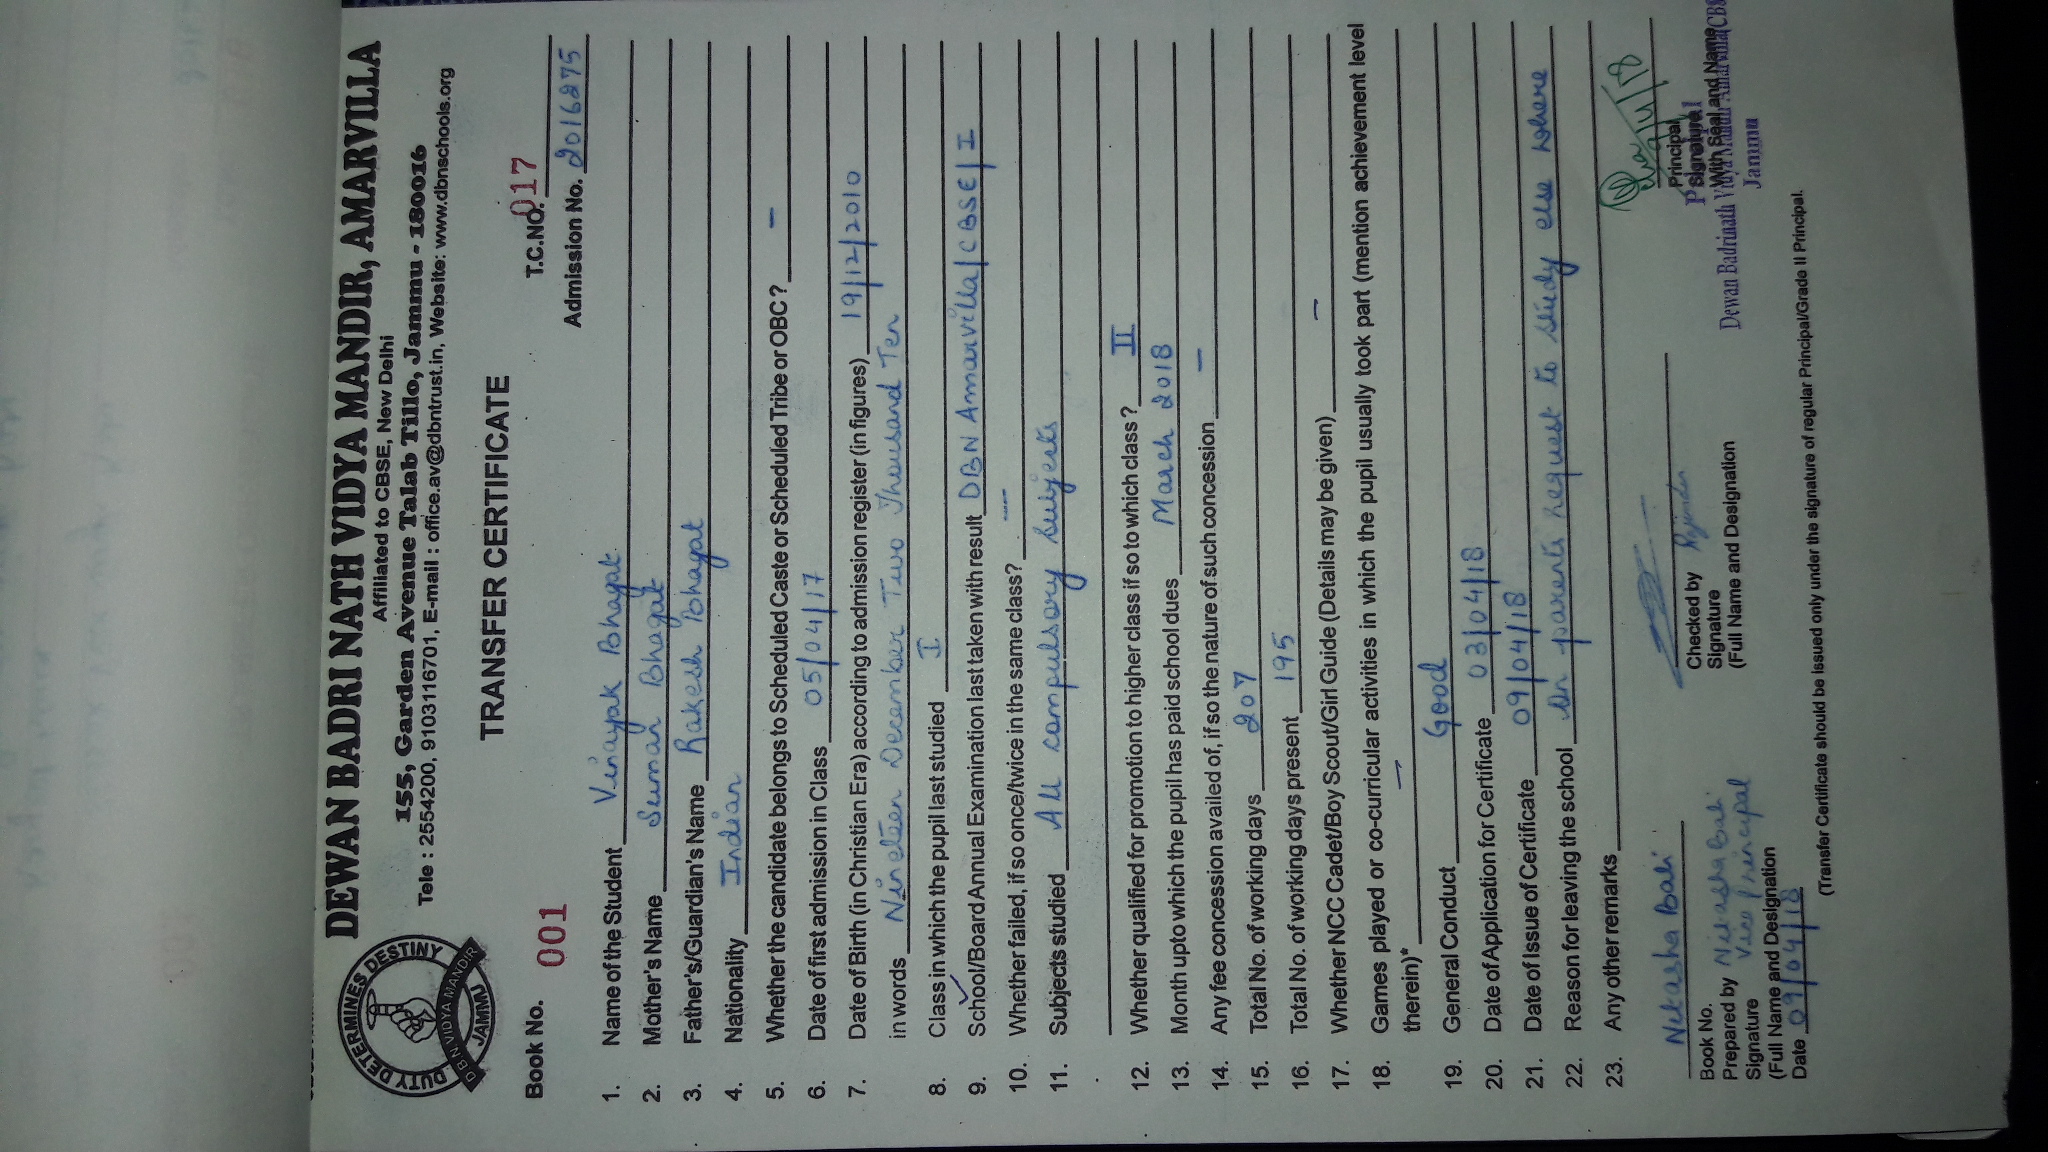 DEWAN BADRI NATH VIDYA MANDIR, AMARVILLA
Affiliated to CBSE, New Delhi
155, Garden Avenue Talab Tillo, Jammu - 180016
Tele : 2554200, 9103116701, E-mail : office.av@dbntrust.in, Website: www.dbnschools.org
DUTY DETERMINES DESTINY
D B N VIDYA MANDIR
JAMMU
TRANSFER CERTIFICATE
Book No. 001 T.C.No. 017
Admission No. 2016275
1. Name of the Student Vinayak Bhagat
2. Mother's Name Suman Bhagat
3. Father's/Guardian's Name Rakesh Bhagat
4. Nationality Indian
5. Whether the candidate belongs to Scheduled Caste or Scheduled Tribe or OBC? –
6. Date of first admission in Class 05/04/17
7. Date of Birth (in Christian Era) according to admission register (in figures) 19/12/2010
in words Nineteen December Two Thousand Ten
8. Class in which the pupil last studied I
9. School/Board Annual Examination last taken with result DBN Amarvilla/CBSE/I
10. Whether failed, if so once/twice in the same class? —
11. Subjects studied All compulsory Subjects
12. Whether qualified for promotion to higher class if so to which class ? II
13. Month upto which the pupil has paid school dues March 2018
14. Any fee concession availed of, if so the nature of such concession –
15. Total No. of working days 207
16. Total No. of working days present 195
17. Whether NCC Cadet/Boy Scout/Girl Guide (Details may be given) –
18. Games played or co-curricular activities in which the pupil usually took part (mention achievement level
therein)* –
19. General Conduct Good
20. Date of Application for Certificate 03/04/18
21. Date of Issue of Certificate 09/04/18
22. Reason for leaving the school On parents request to study else where
23. Any other remarks
Nitasha Bali
Book No.
Prepared by Nitasha Bali
Signature Vice Principal
(Full Name and Designation
Date 09/04/18
Checked by Rajinder
Signature
(Full Name and Designation
Principal
Signature
With Seal and Name
Dewan Badrinath Vidya Mandir Amarvilla(CBS
Jammu
(Transfer Certificate should be issued only under the signature of regular Principal/Grade II Principal.